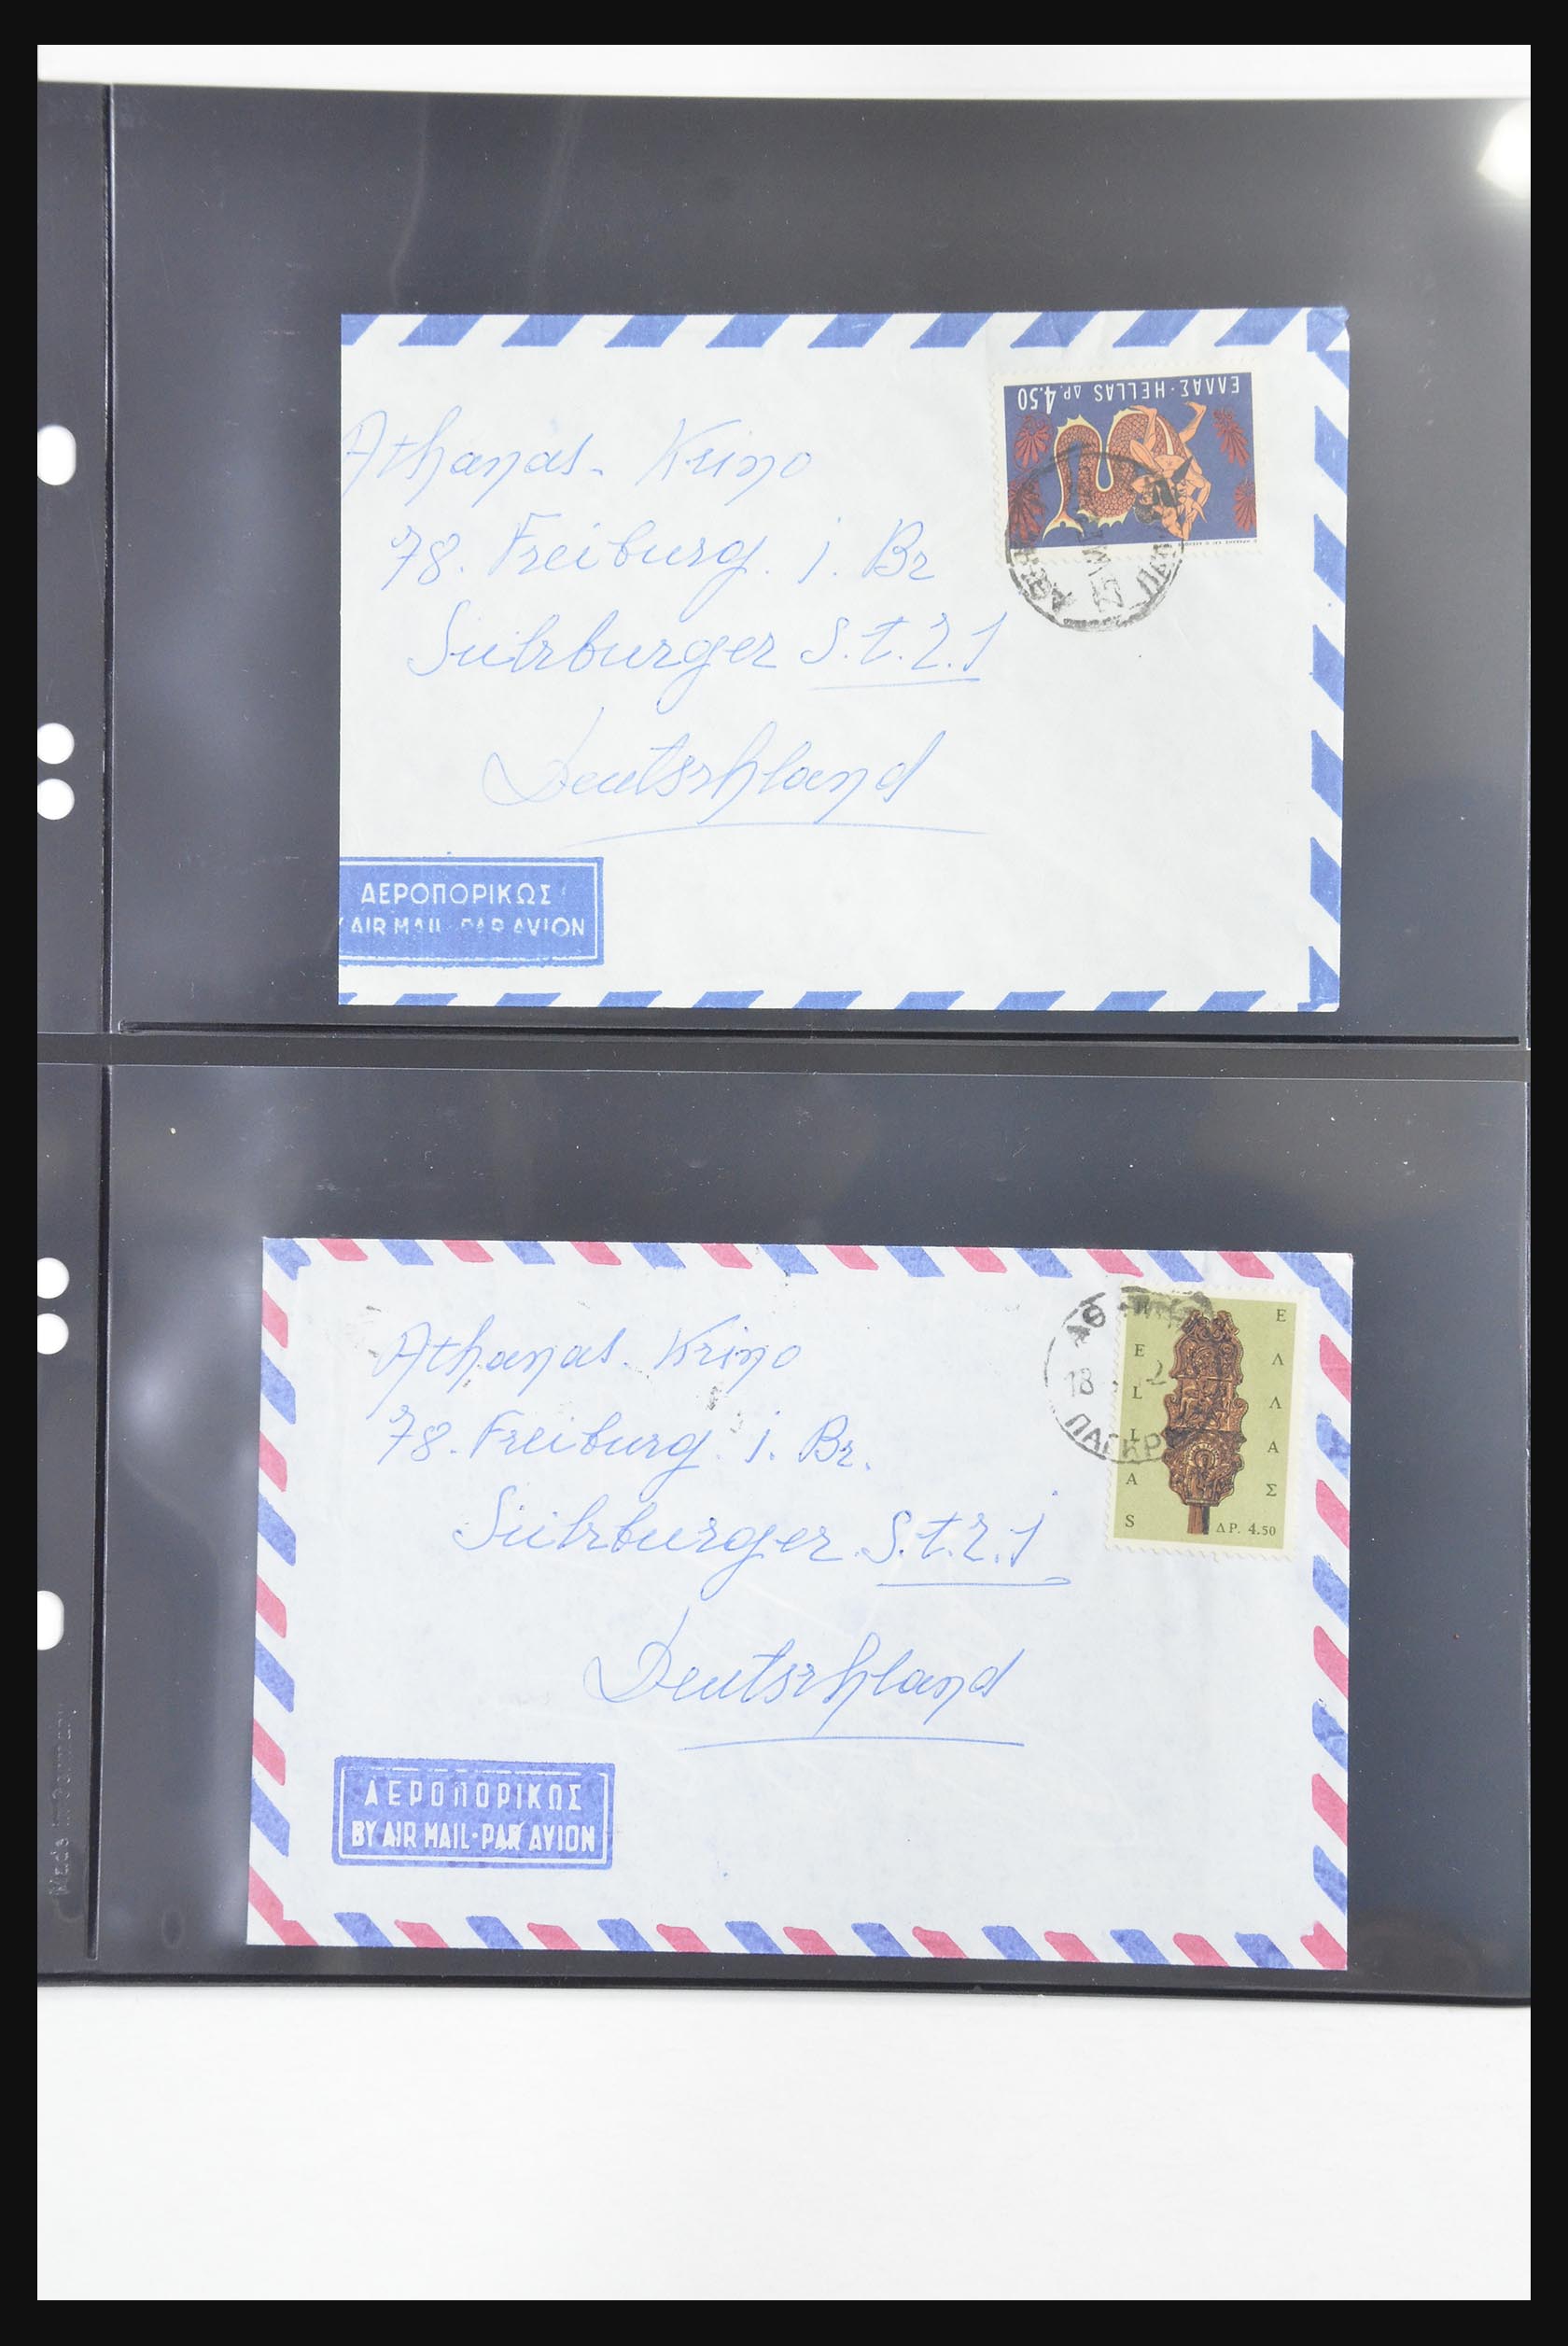 ΕΛΛΑΣ·HELLAS ΔΡ. 4.50
Athanas. Krino
78. Freiburg. i. Br
Sulzburger S.t.2.1
Deutschland
ΑΕΡΟΠΟΡΙΚΩΣ
AIR MAIL PAR AVION
HELLAS
ΕΛΛΑΣ
ΔΡ. 4.50
18
ΠΑΓΚΡ
Athanas. Krino
78. Freiburg i. Br.
Sulzburger S.t.2.1
Deutschland
ΑΕΡΟΠΟΡΙΚΩΣ
BY AIR MAIL·PAR AVION
Made in Germany